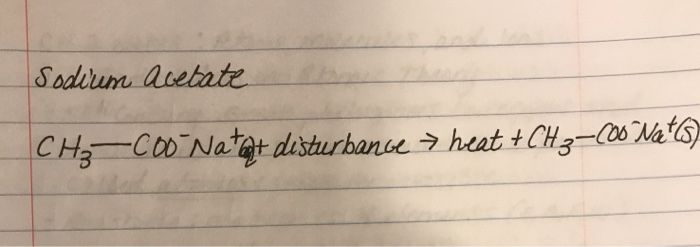 Sodium Acetate
CH₃—COO⁻Na⁺ + disturbance → heat + CH₃—COO⁻Na⁺(s)